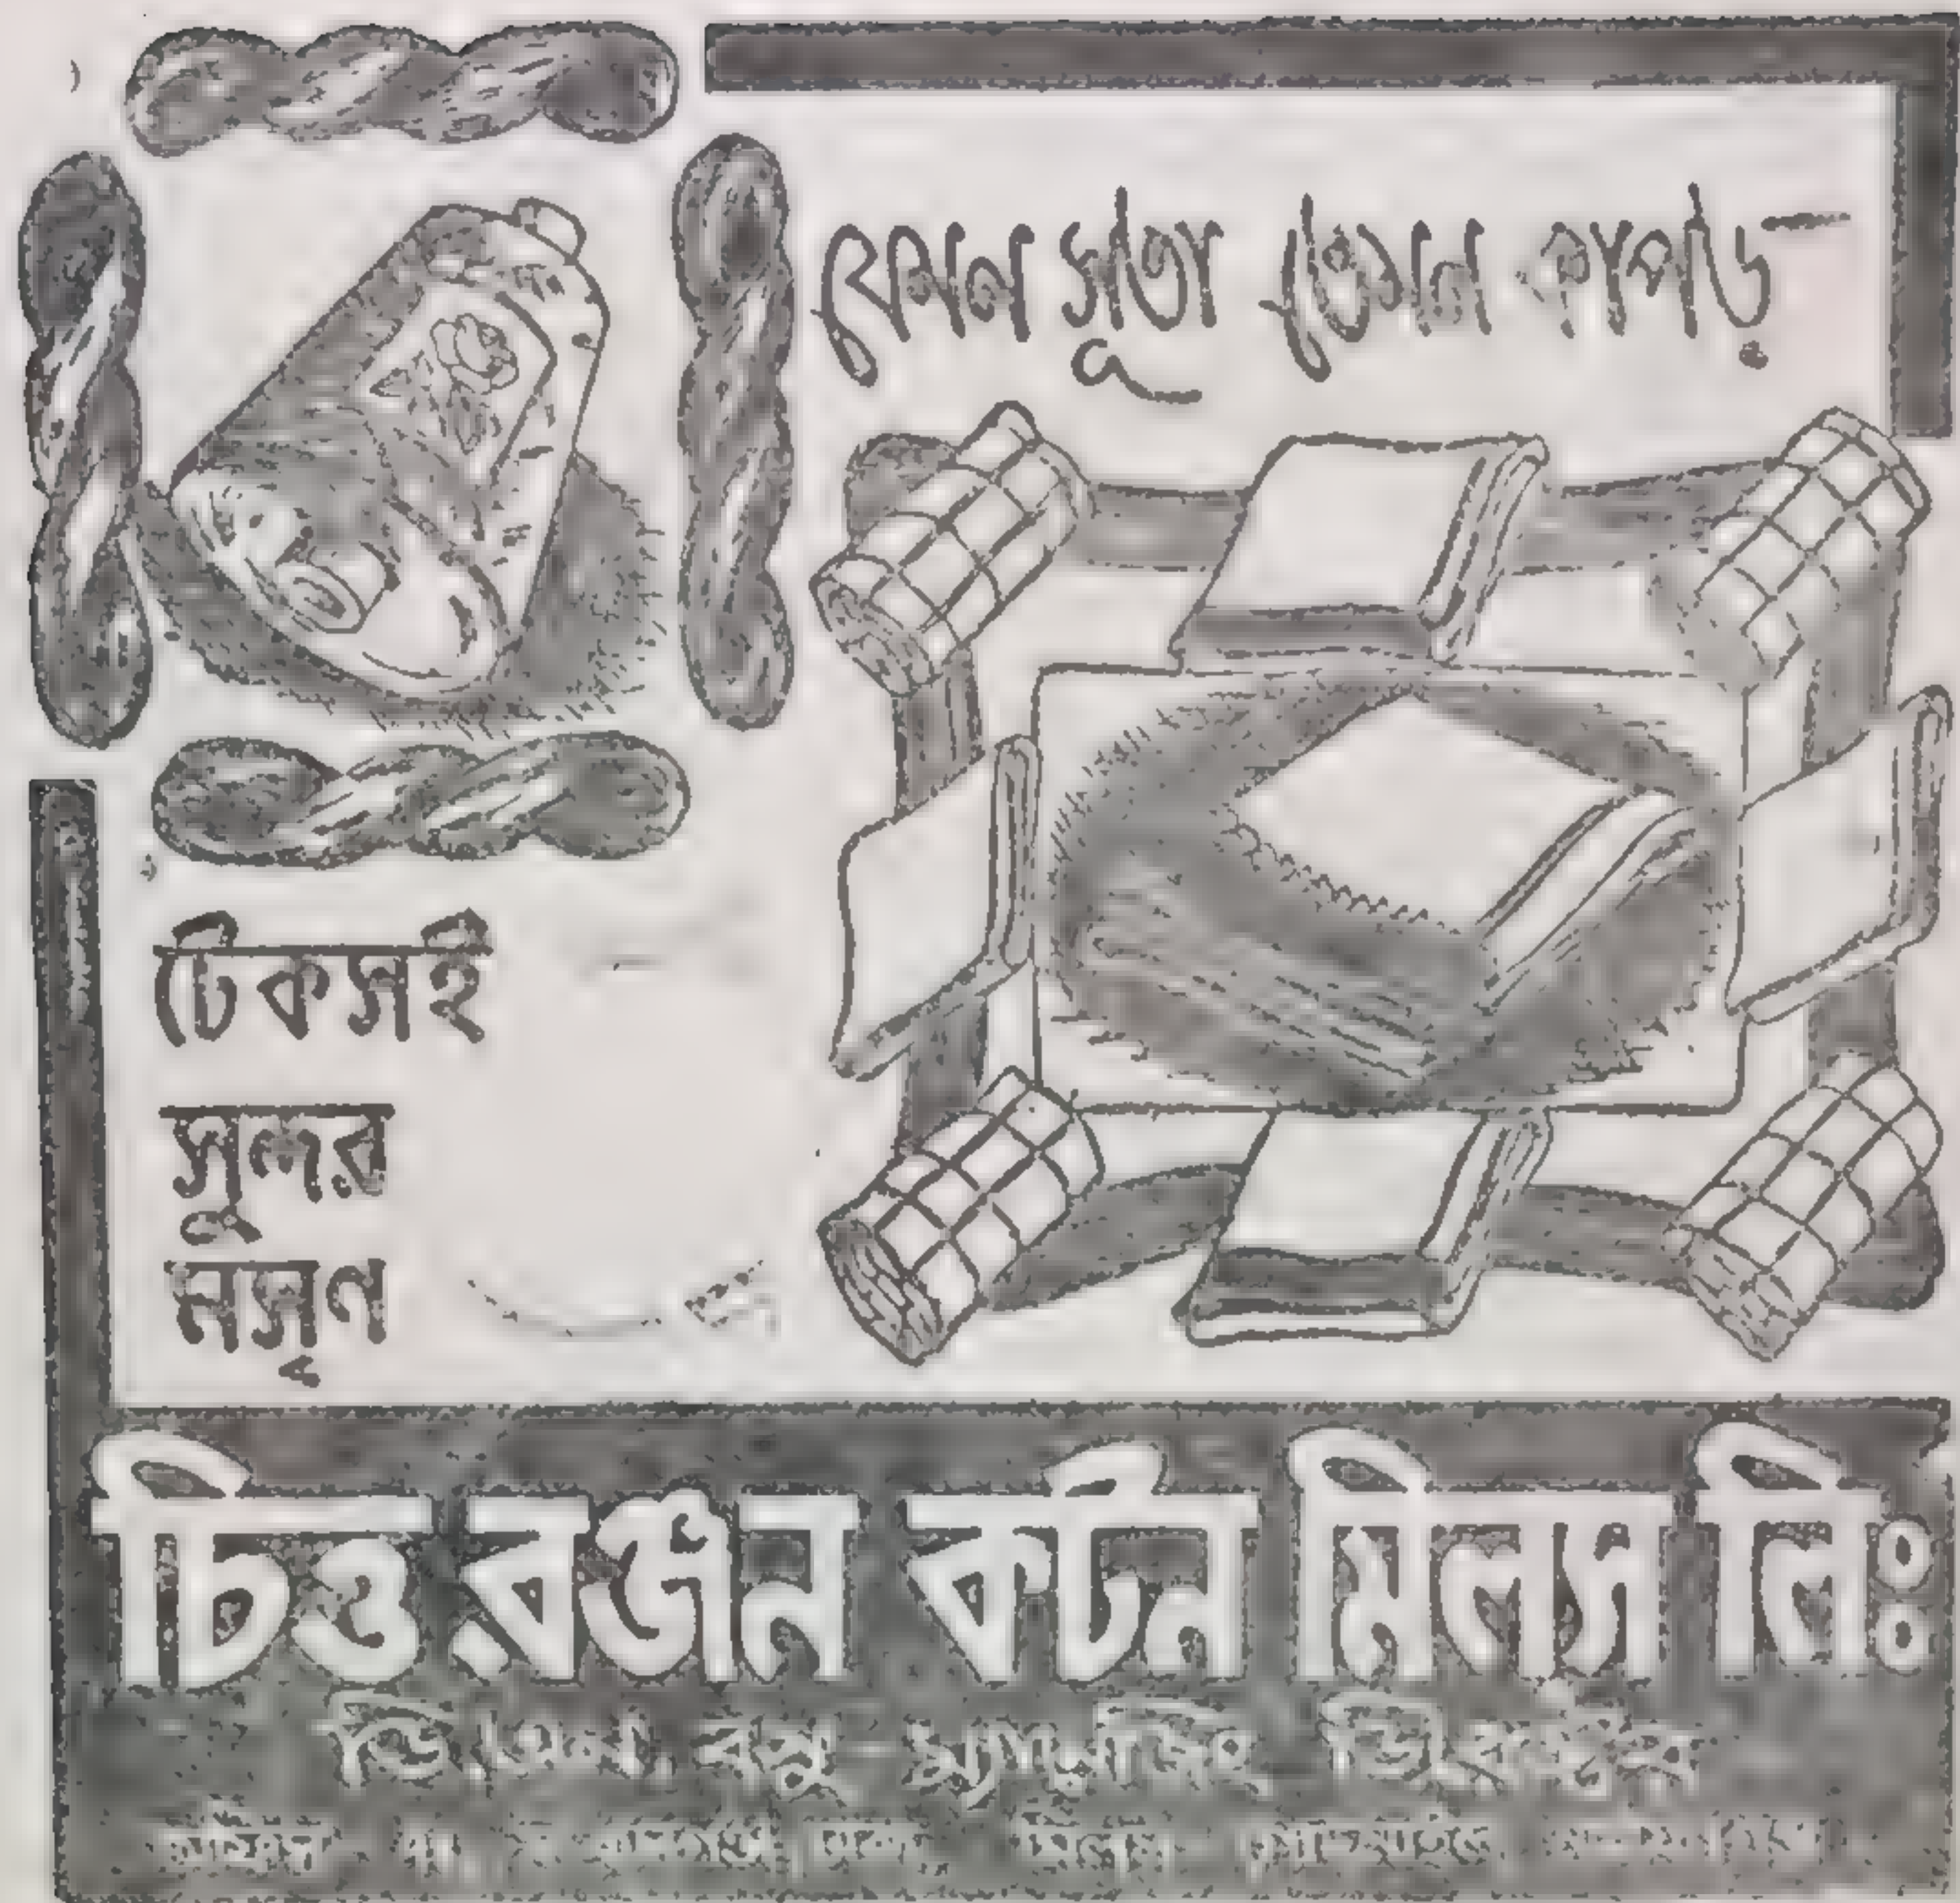 যেমন সূতা তেমন কাপড়—
টেকসই
সুন্দর
মসৃণ
চিত্তরঞ্জন কটন মিলস লিঃ
ডি, এন, বসু—ম্যানেজিং ডিরেক্টর